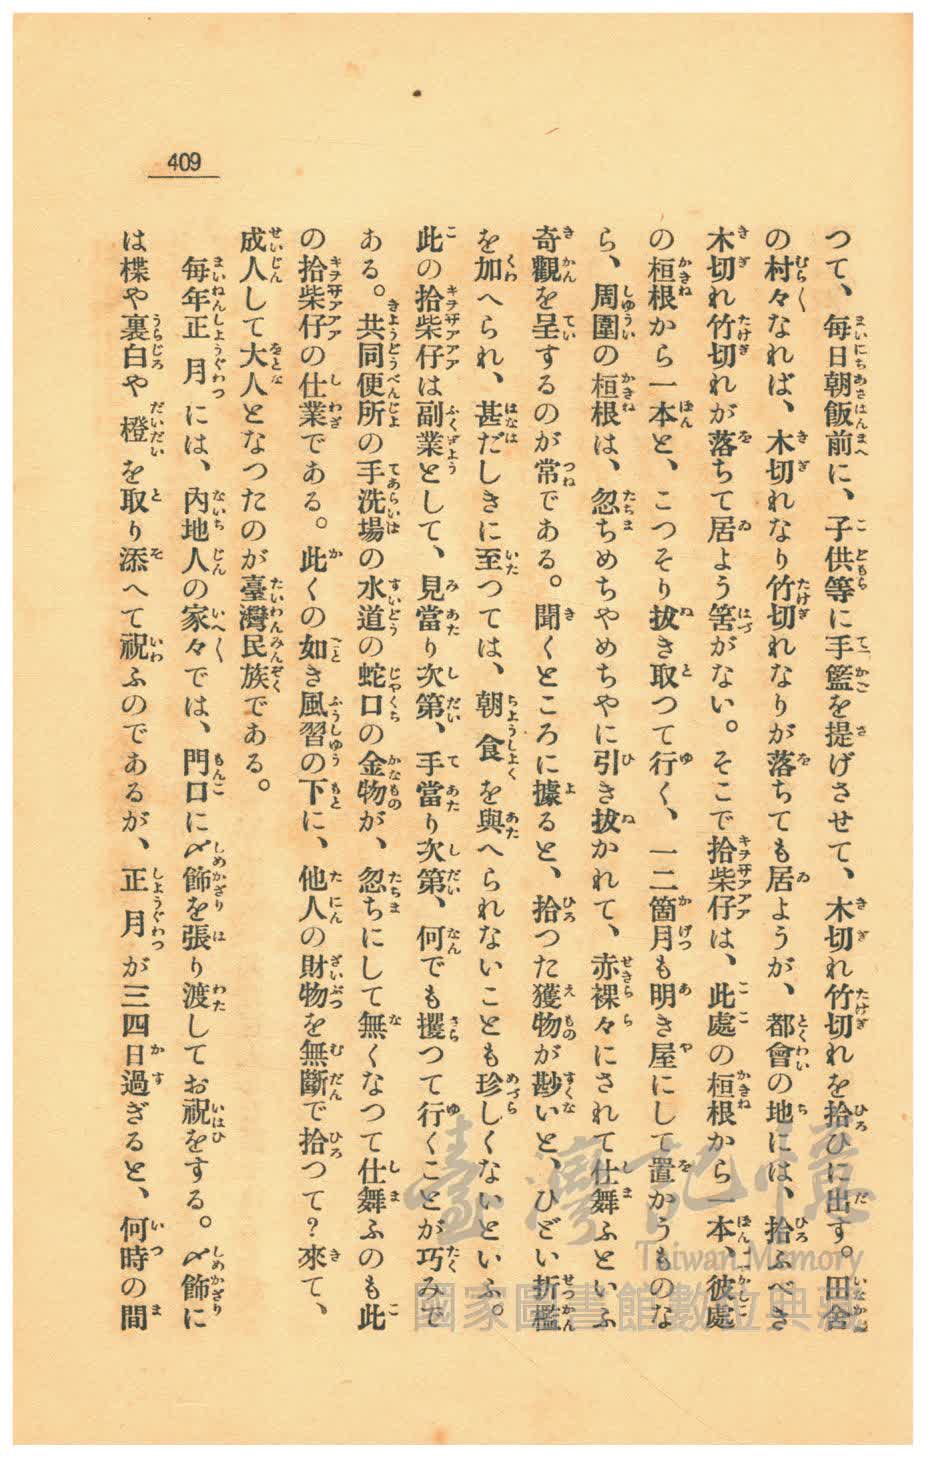 409
つて、每日朝飯前に、子供等に手籃を提げさせて、木切れ竹切れを拾ひに出す。田舍
の村々なれば、木切れなり竹切れなりが落ちても居ようが、都會の地には、拾ふべき
木切れ竹切れが落ちて居よう筈がない。そこで拾柴仔は、此處の桓根から一本、彼處
の桓根から一本と、こつそり拔き取つて行く、一二箇月も明き屋にして置かうものな
ら、周圍の桓根は、忽ちめちやめちやに引き拔かれて、赤裸々にされて仕舞ふといふ
奇觀を呈するのが常である。聞くところに據ると、拾つた獲物が尠いと、ひどい折檻
を加へられ、甚だしきに至つては、朝食を與へられないことも珍しくないといふ。
此の拾柴仔は副業として、見當り次第、手當り次第、何でも攫つて行くことが巧みで
ある。共同便所の手洗場の水道の蛇口の金物が、忽ちにして無くなつて仕舞ふのも此
の拾柴仔の仕業である。此くの如き風習の下に、他人の財物を無斷で拾つて?來て、
成人して大人となつたのが臺灣民族である。
每年正月には、內地人の家々では、門口に〆飾を張り渡してお祝をする。〆飾に
は楪や裏白や橙を取り添へて祝ふのであるが、正月が三四日過ぎると、何時の間
臺灣記憶
Taiwan Memory
國家圖書館數位典藏